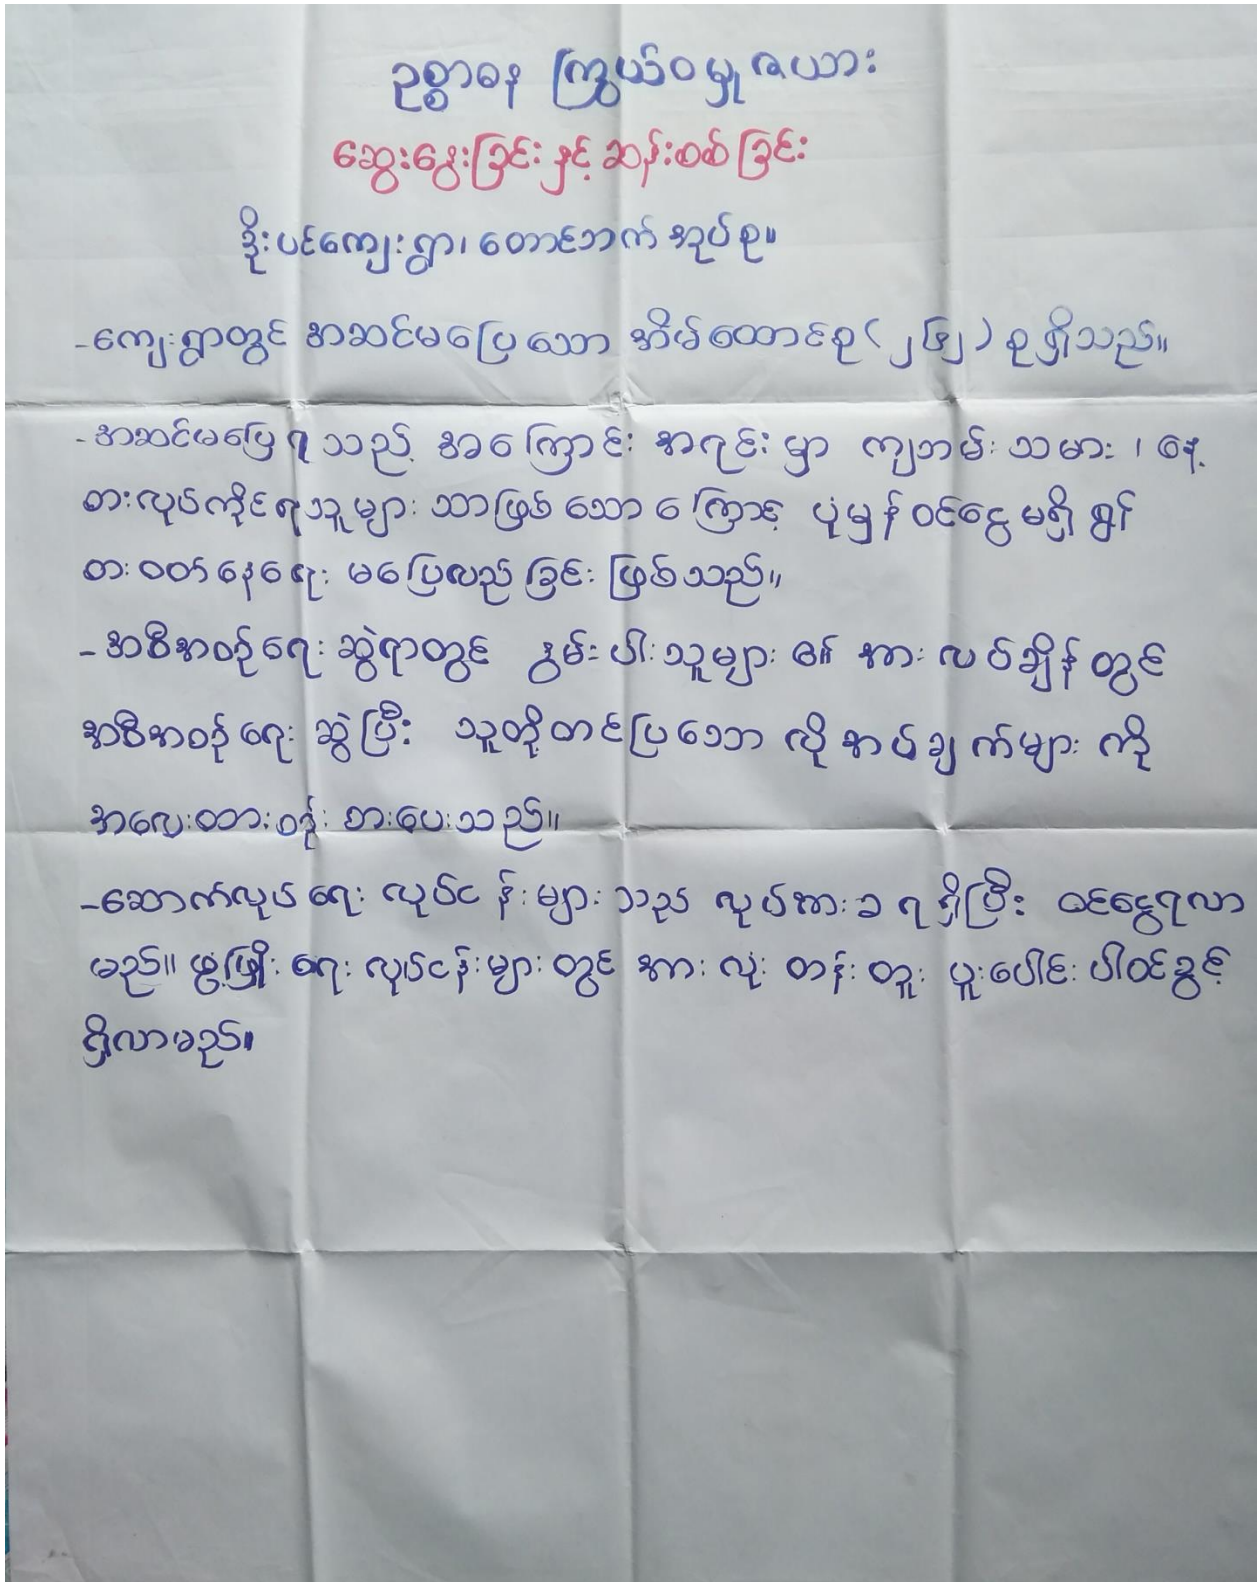 ဥစ္စာဓန ကြွယ်ဝမှုဇယား
ဆွေးနွေးခြင်းနှင့်ဆန်းစစ်ခြင်း
ဒိုးပင်ကျေးရွာ၊ တောင်ဘက်အုပ်စု။
-ကျေးရွာတွင် အဆင်မပြေသော အိမ်ထောင်စု( ) စုရှိသည်။
-အဆင်မပြေရသည့် အကြောင်းအရင်းမှာ ကျဘမ်းသမား ၊ နေ့
စားလုပ်ကိုင်ရသူများသာဖြစ်သောကြောင့် ပုံမှန်ဝင်ငွေမရှိ၍
စားဝတ်နေရေး မပြေလည်ခြင်းဖြစ်သည်။
-အစီအစဉ်ရေးဆွဲရာတွင် နွမ်းပါးသူများ၏ အားလပ်ချိန်တွင်
အစီအစဉ်ရေးဆွဲပြီး သူတို့တင်ပြသော လိုအပ်ချက်များကို
အလေးထားစဉ်းစားပေးသည်။
-ဆောက်လုပ်ရေးလုပ်ငန်းများသည် လုပ်အားခရရှိပြီး ဝင်ငွေရလာ
မည်။ ဖွံ့ဖြိုးရေးလုပ်ငန်းများတွင် အားလုံးတန်းတူ ပူးပေါင်းပါဝင်ခွင့်
ရှိလာမည်။